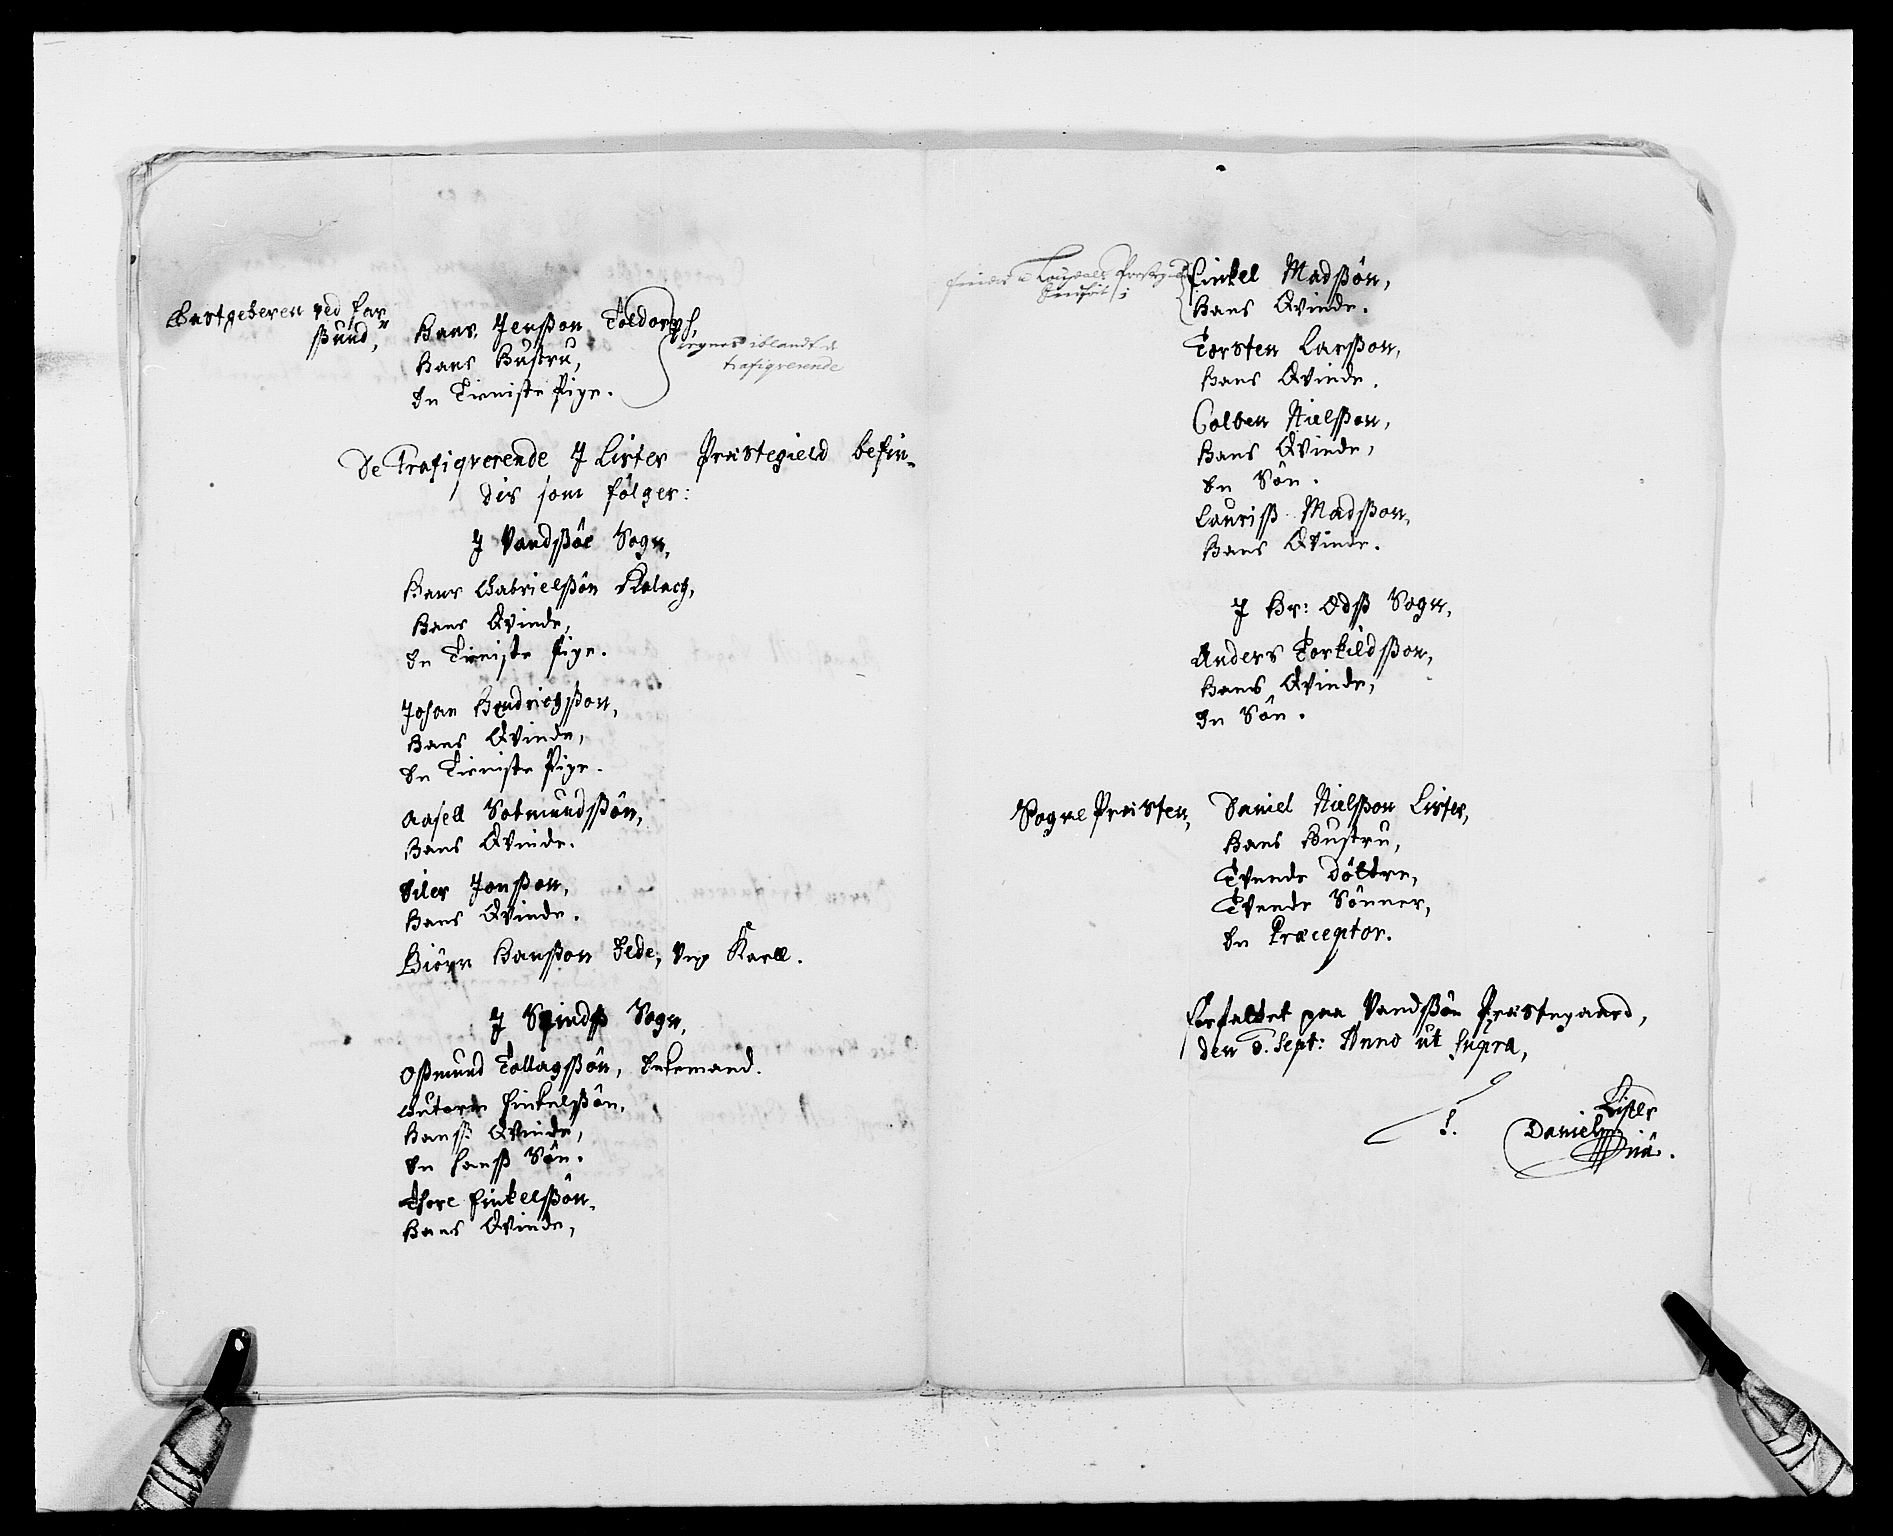 Gastgeberen ved Far-
sund,
Hans Jenßon Toldorph,
Hans Hustru,
En Tieniste Pige.
regnes iblandt de
trafiqverende
De Trafiqverende J Lister Præstegield befin-
dis som følger:
J Vandßöe Sogn,
Hans Gabrielßön Kolach,
Hans Qvinde,
En Tieniste Pige.
Johan Hendrichßon,
Hans Qvinde,
En Tieniste Pige.
Aasell Sotmundßön,
Hans Qvinde.
Eiler Jonßon,
Hans Qvinde.
Biörn Hanßon Elde, Ung Karll.
J Spindß Sogn,
Oßmund Tollagßön, Enkemand.
Gutorm Finkelßön,
Hanß Qvinde,
En hanß Sön.
Thore Finkelßön,
Hans Qvinde,
Finkel Madßön,
Hans Qvinde.
Torsten Larßon,
Hans Qvinde.
Colben Nielßon,
Hans Qvinde,
En Sön.
Lauriß Madßon,
Hans Qvinde.
J Hr: Odß Sogn,
Anders Torkildßon,
Hans Qvinde,
En Sön.
Sogne Præsten,
Daniel Nielßon Lister,
Hans Hustru,
Tvende Döttre,
Tvende Sönner,
En Præceptor.
Forfattet paa Vandßöe Præstegaard,
den 8. Sept: Anno ut supra,
Lister
Daniel